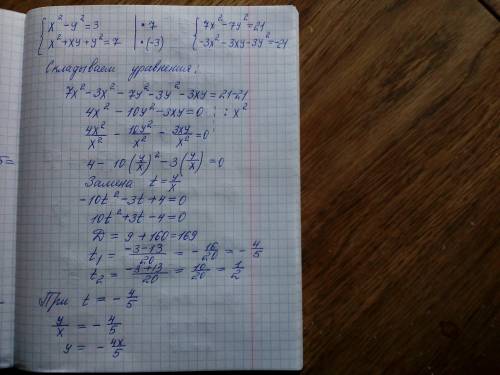 { x² - y² = 3 | · 7 { 7x² - 7y² = 21
x² + xy + y² = 7 | · (-3) -3x² - 3xy - 3y² = -21
Складываем уравнения:
7x² - 3x² - 7y² - 3y² - 3xy = 21 - 21
4x² - 10y² - 3xy = 0 ¦ : x²
4x²/x² - 10y²/x² - 3xy/x² = 0
4 - 10(y/x)² - 3(y/x) = 0
Замена t = y/x
-10t² - 3t + 4 = 0
10t² + 3t - 4 = 0
D = 9 + 160 = 169
t₁ = (-3-13)/20 = -16/20 = -4/5
t₂ = (-3+13)/20 = 10/20 = 1/2
При t = -4/5
y/x = -4/5
y = -4x/5